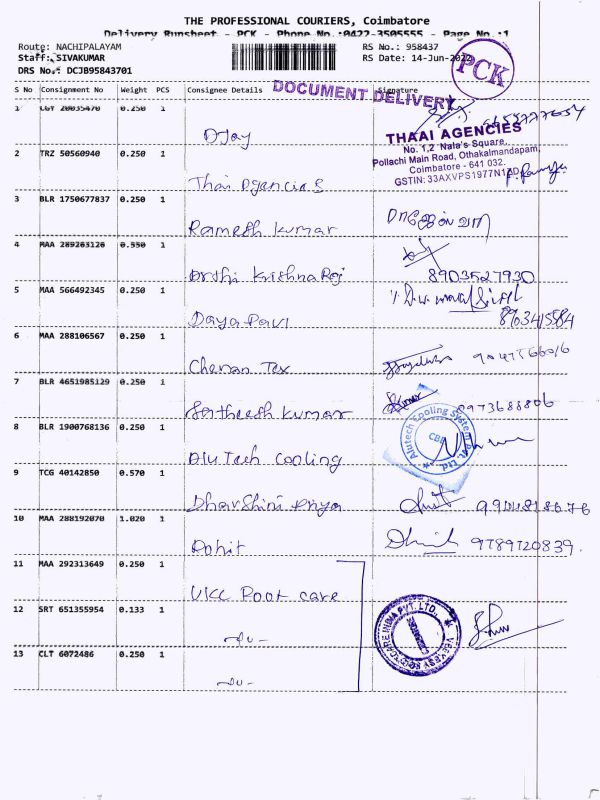 THE PROFESSIONAL COURIERS, Coimbatore
Delivery Runsheet - PCK - Phone No.:0422-3505555 - Page No.:1
Route: NACHIPALAYAM
RS No.: 958437
Staff: SIVAKUMAR
RS Date: 14-Jun-2022
DRS No.: DCJB95843701
PCK
S No Consignment No Weight PCS Consignee Details Signature
DOCUMENT DELIVERY
1 LGT 20035470 0.250 1
DJay
THAAI AGENCIES
No. 1,2 Nala's Square,
Pollachi Main Road, Othakalmandapam,
Coimbatore - 641 032.
GSTIN: 33AXVPS1977N1
2 TRZ 50560940 0.250 1
Thai Dgencies
3 BLR 1750677837 0.250 1
Ramesh kumar
4 MAA 289263126 0.550 1
Arthi Krishna Raj
8903527930
5 MAA 566492345 0.250 1
Daya Ravi
8903415584
6 MAA 288106567 0.250 1
Chenan Tex
7 BLR 4651985129 0.250 1
Satheesh kumar
8 BLR 1900768136 0.250 1
Alutech Cooling System Pvt. Ltd.
CBE
AluTech Cooling
9 TCG 40142850 0.570 1
DharShini Priya
9944818676
10 MAA 288192070 1.020 1
Rohit
9789720839.
11 MAA 292313649 0.250 1
VKC Foot care
12 SRT 651355954 0.133 1
-Do-
13 CLT 6072486 0.250 1
-Do-